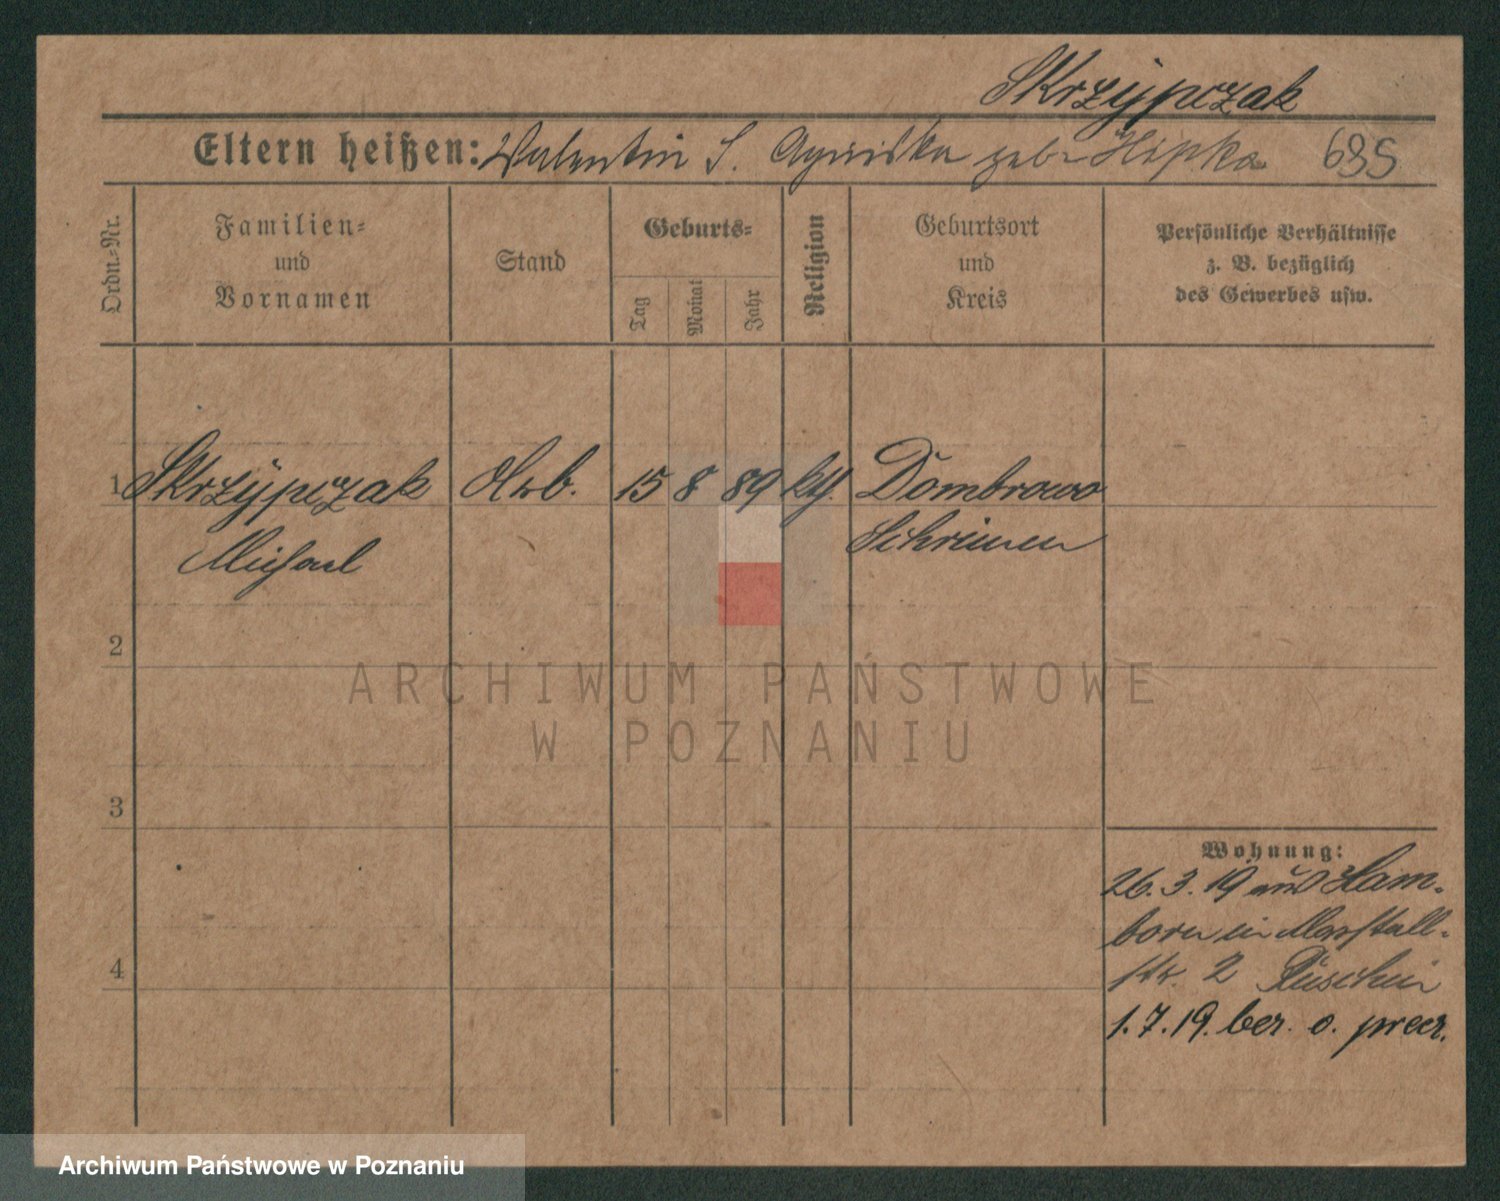 Skrzypczak
Eltern heißen: Valentin S. Agniska geb. Hipka 695
Ordn.-Nr.
Familien-
und
Vornamen
Stand
Geburts-
Tag
Monat
Jahr
Religion
Geburtsort
und
Kreis
Persönliche Verhältnisse
z. B. bezüglich
des Gewerbes usw.
1 Skrzypczak Arb. 15 8 89 kth. Dombrowo
Michael Schrimm
2
ARCHIWUM PAŃSTWOWE
W POZNANIU
3
Wohnung:
26. 3. 19 aus Ham-
born in Marstall-
str. 2
4
1. 7. 19. ber. o.
Archiwum Państwowe w Poznaniu